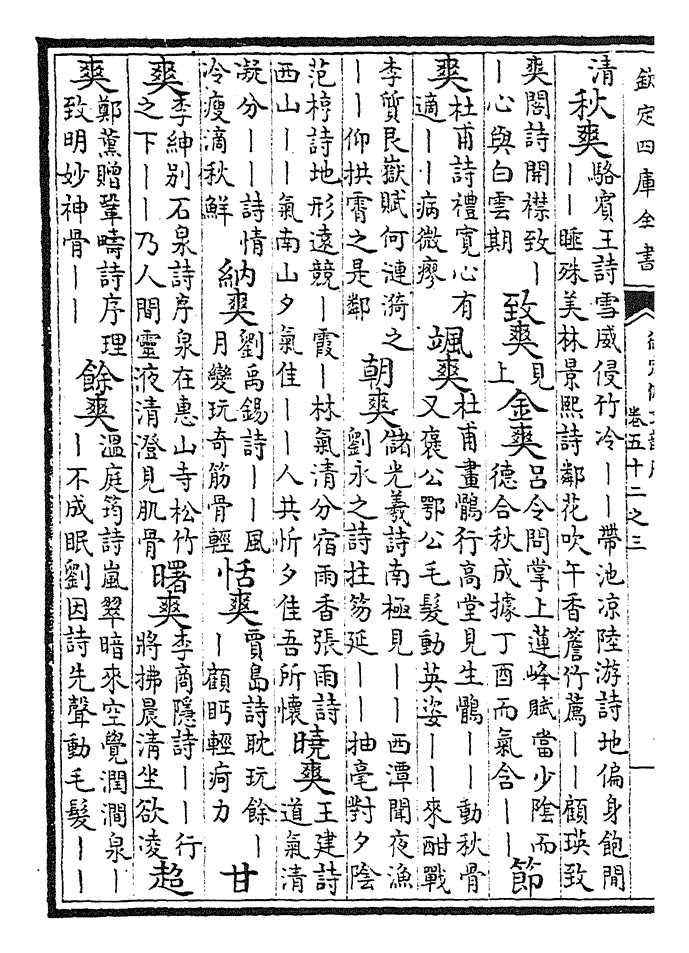 欽定四庫全書
卷五十二之三
清秋爽駱賓王詩雪威侵竹冷——帶池凉陸游詩地偏身飽閒——睡殊美林景熙詩鄰花吹午香簷竹薦——顧瑛致
爽閣詩開襟致——心與白雲期致爽見上金爽吕令問掌上蓮峰賦當少陰而德合秋成據丁酉而氣含——節
爽杜甫詩禮寛心有適——病微瘳颯爽杜甫畫鶻行高堂見生鶻——動秋骨又褒公鄂公毛髮動英姿——來酣戰
李質艮嶽賦何漣漪之——仰拱霄之是鄰朝爽儲光羲詩南極見——西潭聞夜漁劉永之詩拄笏延——抽毫對夕陰
范梈詩地形遠競—霞—林氣清分宿雨香張雨詩西山——氣南山夕氣佳——人共忻夕佳吾所懷曉爽王建詩道氣清
凝分——詩情冷瘦滴秋鮮納爽劉禹錫詩——風月變玩奇筋骨輕恬爽賈島詩耽玩餘——顧眄輕痾力甘
爽李紳别石泉詩序泉在惠山寺松竹之下——乃人間靈液清澄見肌骨曙爽李商隱詩——行將拂晨清坐欲凌超
爽鄭薰贈鞏疇詩序理致明妙神骨——餘爽溫庭筠詩嵐翠暗來空覺潤澗泉——不成眠劉因詩先聲動毛髮——